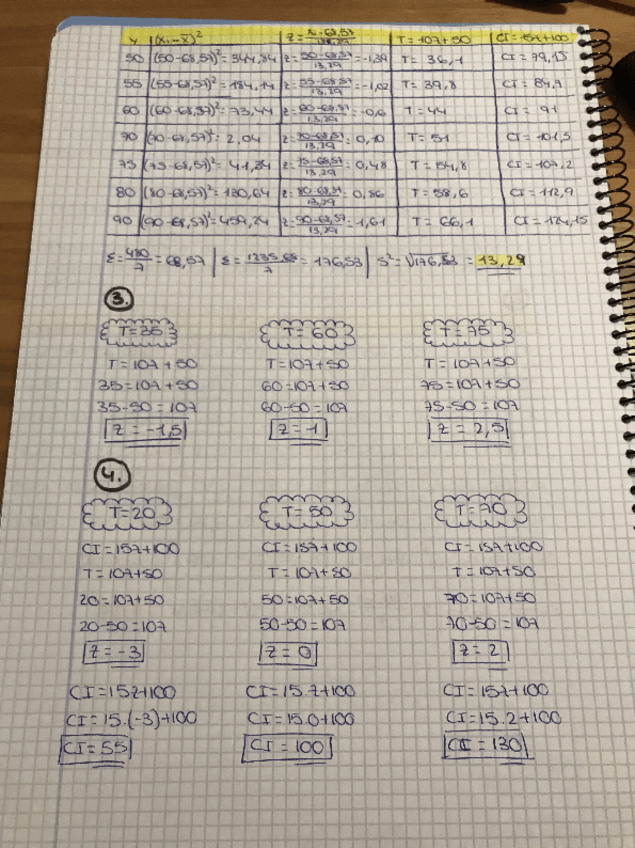 X | (xi-x̄)² | Z = xi-68,57 / 13,29 | T = 10z+50 | CI = 15z+100
50 | (50-68,57)² = 344,84 | z = 50-68,57 / 13,29 = -1,39 | T = 36,1 | CI = 79,15
55 | (55-68,57)² = 184,14 | z = 55-68,57 / 13,29 = -1,02 | T = 39,8 | CI = 84,7
60 | (60-68,57)² = 73,44 | z = 60-68,57 / 13,29 = -0,6 | T = 44 | CI = 91
70 | (70-68,57)² = 2,04 | z = 70-68,57 / 13,29 = 0,10 | T = 51 | CI = 101,5
75 | (75-68,57)² = 41,34 | z = 75-68,57 / 13,29 = 0,48 | T = 54,8 | CI = 107,2
80 | (80-68,57)² = 130,64 | z = 80-68,57 / 13,29 = 0,86 | T = 58,6 | CI = 112,9
90 | (90-68,57)² = 459,24 | z = 90-68,57 / 13,29 = 1,61 | T = 66,1 | CI = 124,15
Σ = 480 / 7 = 68,57 | Σ = 1235,68 / 7 = 176,53 | S² = √176,53 = 13,29
3.
T=35 T=60 T=75
T = 10z+50 T = 10z+50 T = 10z+50
35 = 10z+50 60 = 10z+50 75 = 10z+50
35-50 = 10z 60-50 = 10z 75-50 = 10z
Z = -1,5 Z = 1 Z = 2,5
4.
T=20 T=50 T=70
CI = 15z+100 CI = 15z+100 CI = 15z+100
T = 10z+50 T = 10z+50 T = 10z+50
20 = 10z+50 50 = 10z+50 70 = 10z+50
20-50 = 10z 50-50 = 10z 70-50 = 10z
Z = -3 Z = 0 Z = 2
CI = 15z+100 CI = 15.z+100 CI = 15z+100
CI = 15.(-3)+100 CI = 15.0+100 CI = 15.2+100
CI = 55 CI = 100 CI = 130